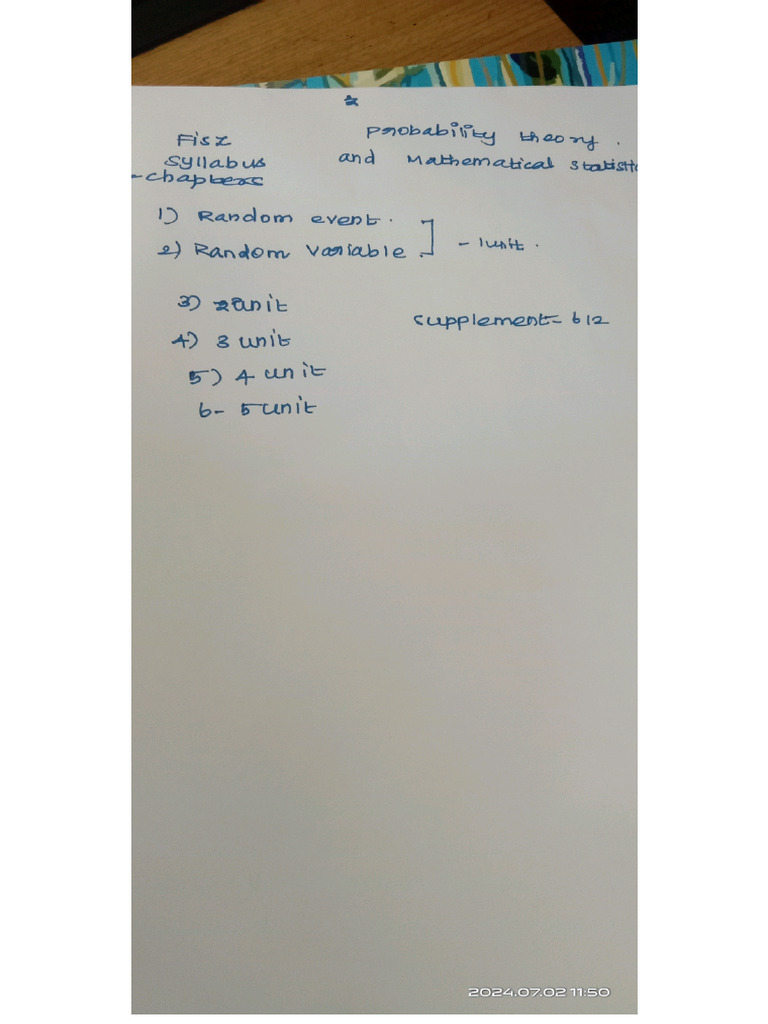 Fisz Probability theory.
Syllabus and Mathematical Statisti
-chapters
1) Random event.
2) Random variable. ] - 1unit.
3) 2unit
supplement- 612
4) 3 unit
5) 4 unit
6- 5unit
2024.07.02 11:50